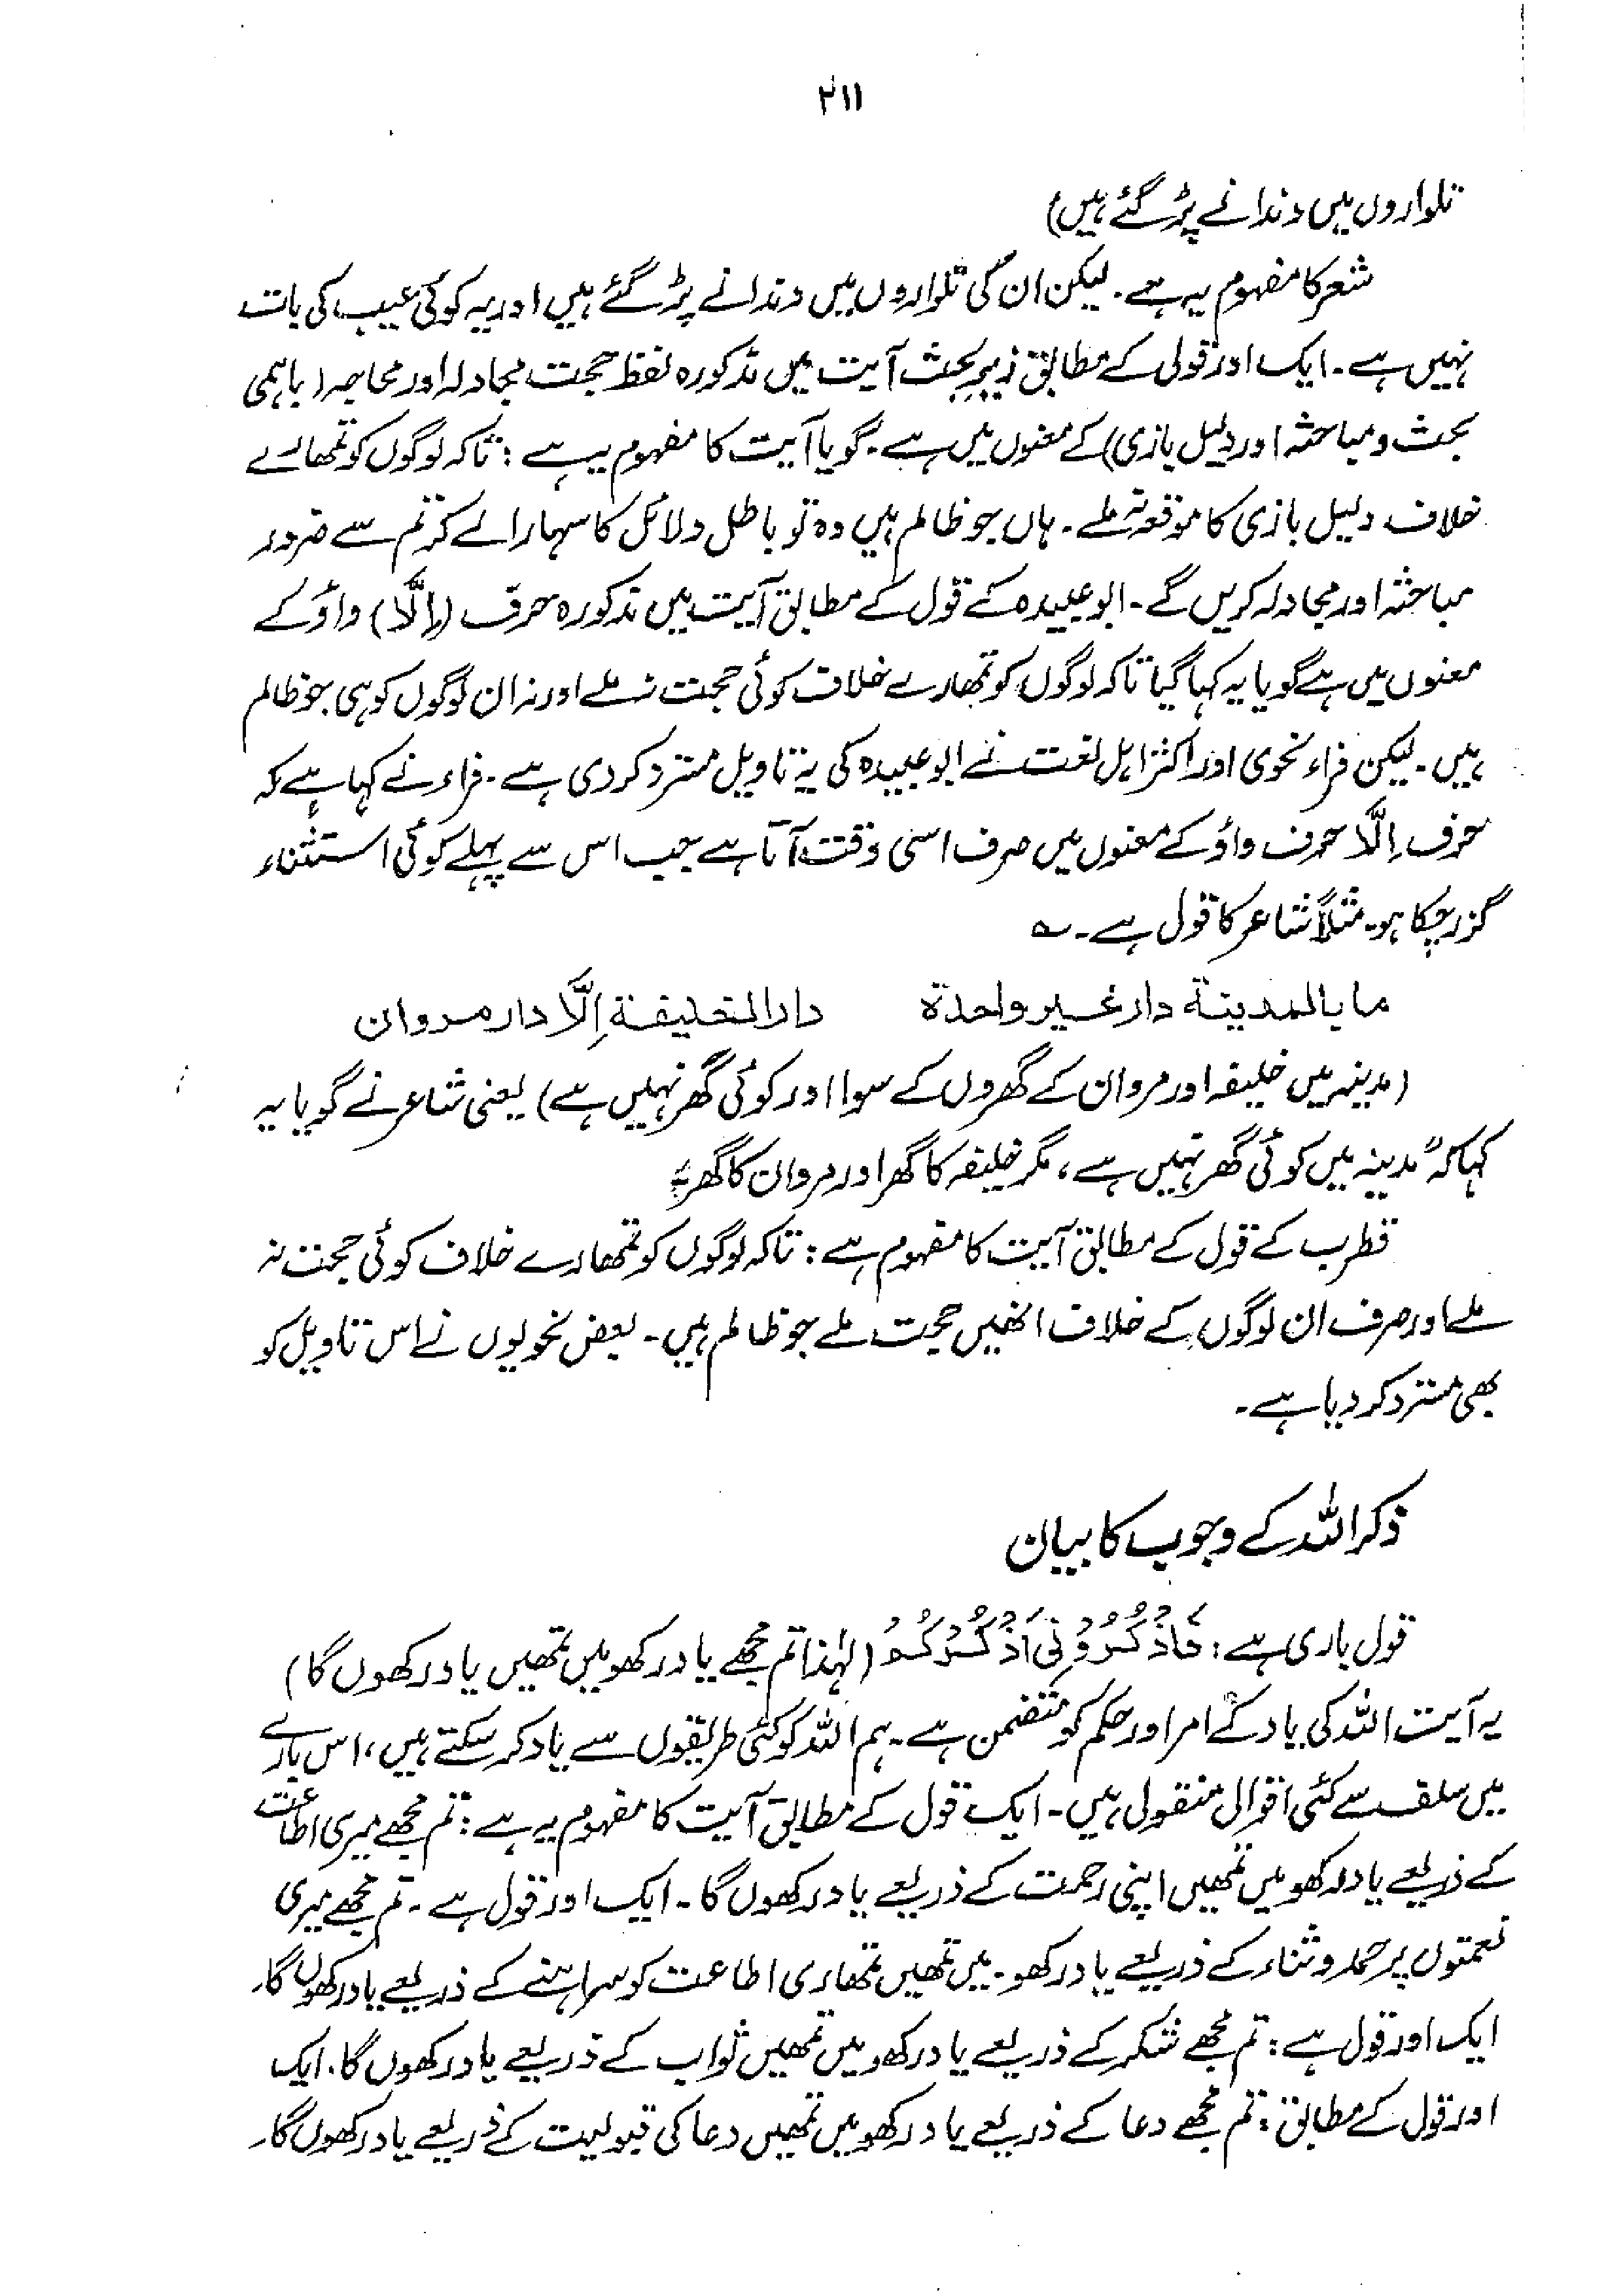 ۲۱۱
تلواروں میں دندانے پڑ گئے ہیں)
شعر کا مفہوم یہ ہے۔ لیکن ان کی تلواروں میں دندانے پڑ گئے ہیں اور یہ کوئی عیب کی بات
نہیں ہے۔ ایک اور قول کے مطابق زیر بحث آیت میں مذکورہ لفظ حجت مجادلہ اور محاجہ (باہمی
بحث و مباحثہ اور دلیل بازی) کے معنوں میں ہے۔ گویا آیت کا مفہوم یہ ہے: تاکہ لوگوں کو تمھارے
خلاف دلیل بازی کا موقعہ نہ ملے۔ ہاں جو ظالم ہیں وہ تو باطل دلائل کا سہارا لے کر تم سے ضرور
مباحثہ اور مجادلہ کریں گے۔ ابو عبیدہ کے قول کے مطابق آیت میں مذکورہ حرف (اِلَّا) واؤ کے
معنوں میں ہے گویا یہ کہا گیا تاکہ لوگوں کو تمھارے خلاف کوئی حجت نہ ملے اور نہ ان لوگوں کو ہی جو ظالم
ہیں۔ لیکن فراء نحوی اور اکثر اہل لغت نے ابو عبیدہ کی یہ تاویل مسترد کر دی ہے۔ فراء نے کہا ہے کہ
حرف اِلَّا حرف واؤ کے معنوں میں صرف اسی وقت آتا ہے جب اس سے پہلے کوئی استثناء
گزر چکا ہو۔ مثلاً شاعر کا قول ہے۔ ؎
ما بالمدينة دار غير واحدة دار الخليفة اِلَّا دار مروان
(مدینہ میں خلیفہ اور مروان کے گھروں کے سوا اور کوئی گھر نہیں ہے) یعنی شاعر نے گویا یہ
کہا کہ "مدینہ میں کوئی گھر نہیں ہے، مگر خلیفہ کا گھر اور مروان کا گھر۔"
قطرب کے قول کے مطابق آیت کا مفہوم ہے: تاکہ لوگوں کو تمھارے خلاف کوئی حجت نہ
ملے اور صرف ان لوگوں کے خلاف انھیں حجت ملے جو ظالم ہیں۔ بعض نحویوں نے اس تاویل کو
بھی مسترد کر دیا ہے۔
ذکر اللہ کے وجوب کا بیان
قول باری ہے: فَاذْكُرُوْنِىْ اَذْكُرْكُمْ (لہٰذا تم مجھے یاد رکھو میں تمھیں یاد رکھوں گا)
یہ آیت اللہ کی یاد کے امر اور حکم کو متضمن ہے۔ ہم اللہ کو کئی طریقوں سے یاد کر سکتے ہیں، اس بارے
میں سلف سے کئی اقوال منقول ہیں۔ ایک قول کے مطابق آیت کا مفہوم یہ ہے: تم مجھے میری اطاعت
کے ذریعے یاد رکھو میں تمھیں اپنی رحمت کے ذریعے یاد رکھوں گا۔ ایک اور قول ہے۔ تم مجھے میری
نعمتوں پر حمد و ثناء کے ذریعے یاد رکھو۔ میں تمھیں تمھاری اطاعت کو سراہنے کے ذریعے یاد رکھوں گا۔
ایک اور قول ہے: تم مجھے شکر کے ذریعے یاد رکھو میں تمھیں ثواب کے ذریعے یاد رکھوں گا۔ ایک
اور قول کے مطابق: تم مجھے دعا کے ذریعے یاد رکھو میں تمھیں دعا کی قبولیت کے ذریعے یاد رکھوں گا۔